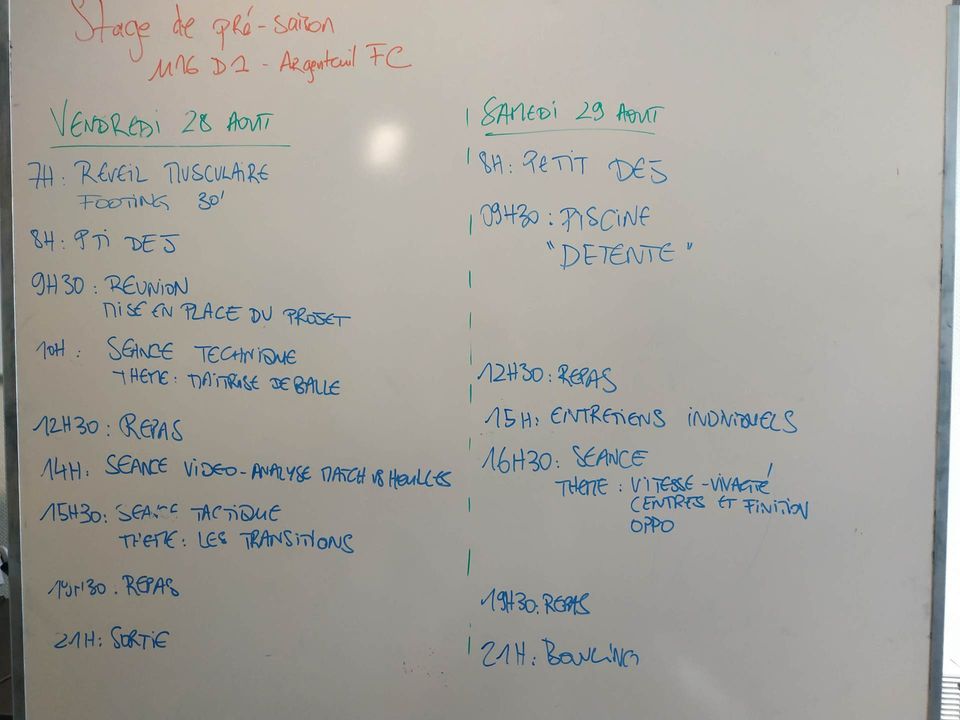 Stage de pré-saison
U16 D1 - Argenteuil FC
VENDREDI 28 AOUT
7H: REVEIL MUSCULAIRE
FOOTING 30'
8H: PTI DEJ
9H30: REUNION
MISE EN PLACE DU PROJET
10H: SEANCE TECHNIQUE
THEME: MAITRISE DE BALLE
12H30: REPAS
14H: SEANCE VIDEO-ANALYSE MATCH VS HOUILLES
15H30: SEANCE TACTIQUE
THEME: LES TRANSITIONS
19H30: REPAS
21H: SORTIE
SAMEDI 29 AOUT
8H: PETIT DEJ
09H30: PISCINE
"DETENTE"
12H30: REPAS
15H: ENTRETIENS INDIVIDUELS
16H30: SEANCE
THEME: VITESSE-VIVACITÉ
CENTRES ET FINITION
OPPO
19H30: REPAS
21H: BOWLING